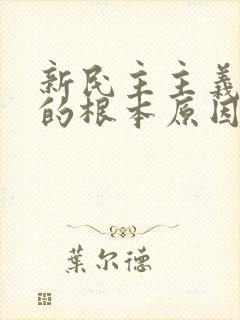 新民主主義
的根本原因
葉尔德